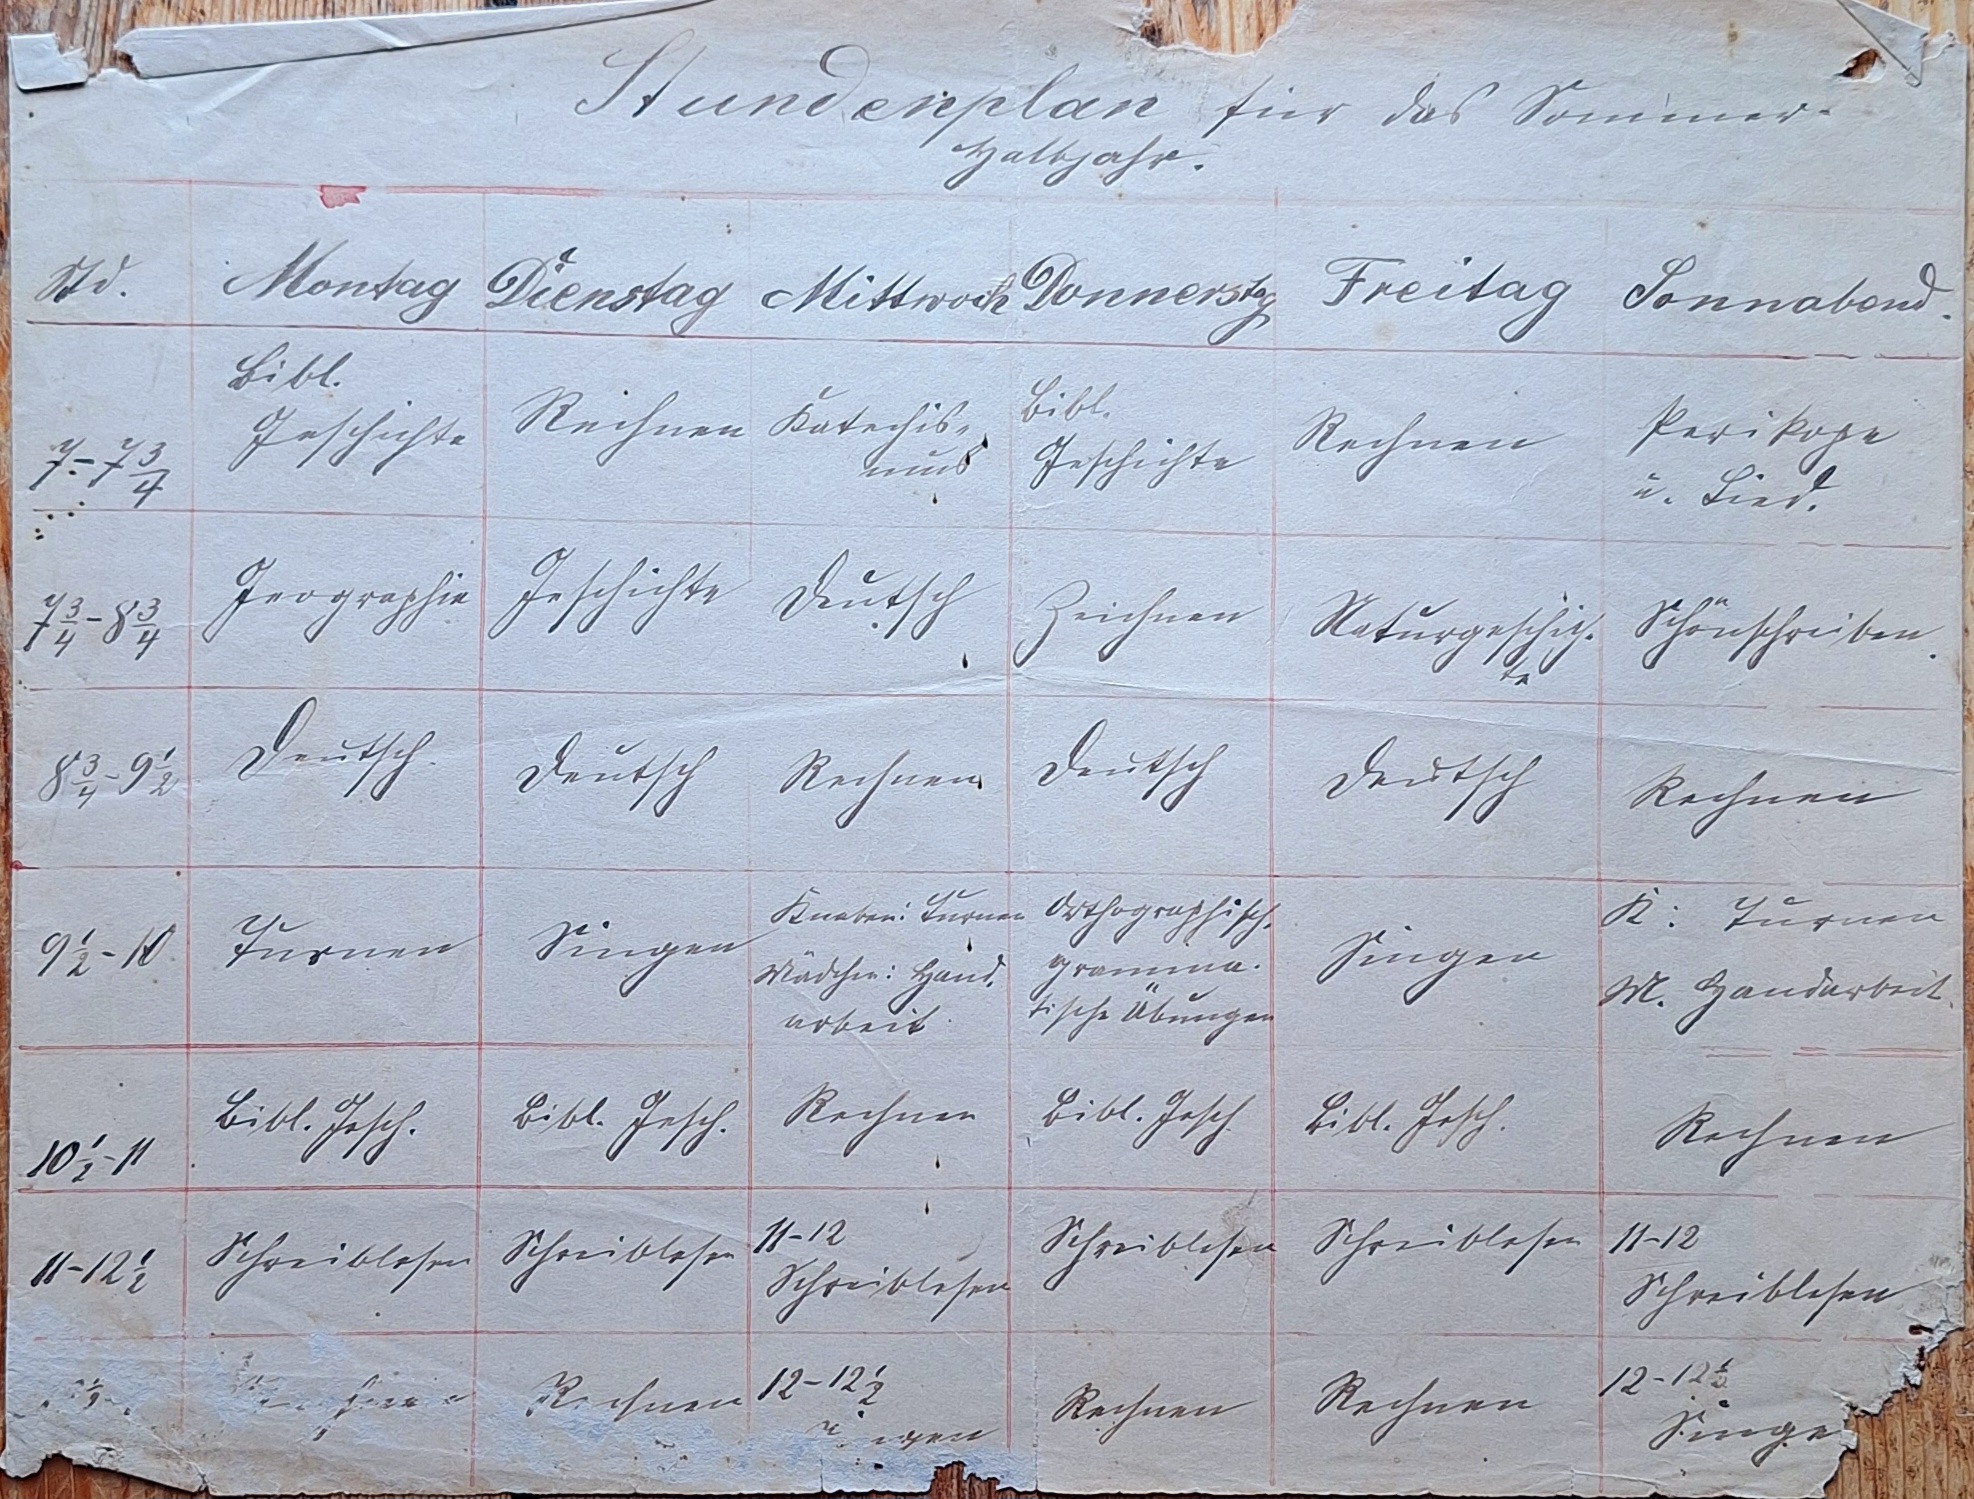 Stundenplan für das Sommer-
Halbjahr.
Std. Montag Dienstag Mittwoch Donnerstg Freitag Sonnabend.
7-7 3/4
Bibl.
Geschichte
Rechnen
Katechis-
mus
Bibl.
Geschichte
Rechnen
Perikope
u. Lied.
7 3/4-8 3/4
Geographie
Geschichte
Deutsch
Zeichnen
Naturgeschich-
te
Schönschreiben.
8 3/4-9 1/2
Deutsch.
Deutsch
Rechnen
Deutsch
Deutsch
Rechnen
9 1/2-10
Turnen
Singen
Knaben: Turnen
Mädchen: Hand-
arbeit
Orthographisch-
gramma-
tische Übungen
Singen
K: Turnen
M. Handarbeit.
10 1/2-11
Bibl. Gesch.
Bibl. Gesch.
Rechnen
Bibl. Gesch
Bibl. Gesch.
Rechnen
11-12 1/2
Schreiblesen
Schreiblesen
11-12
Schreiblesen
Schreiblesen
Schreiblesen
11-12
Schreiblesen
Rechnen
12-12 1/2
Rechnen
Rechnen
12-12 1/2
Singe